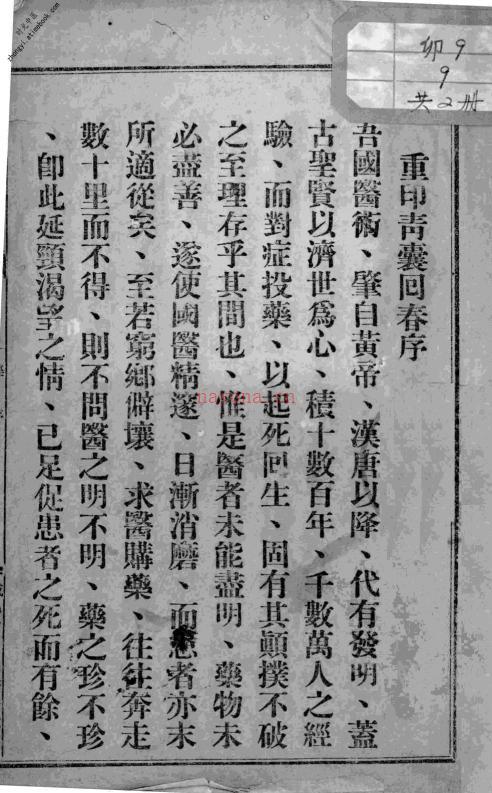 重印靑囊回春序
吾國醫術、肇自黃帝、漢唐以降、代有發明、蓋
古聖賢以濟世爲心、積十數百年、千數萬人之經
驗、而對症投藥、以起死回生、固有其顚撲不破
之至理存乎其間也、惟是醫者未能盡明、藥物未
必盡善、遂使國醫精邃、日漸消磨、而患者亦末
所適從矣、至若窮鄉僻壤、求醫購藥、往往奔走
數十里而不得、則不問醫之明不明、藥之珍不珍
、卽此延頸渴望之情、已足促患者之死而有餘、
卯9
9
共2册
时光中医
zhongyi.atimebook.com